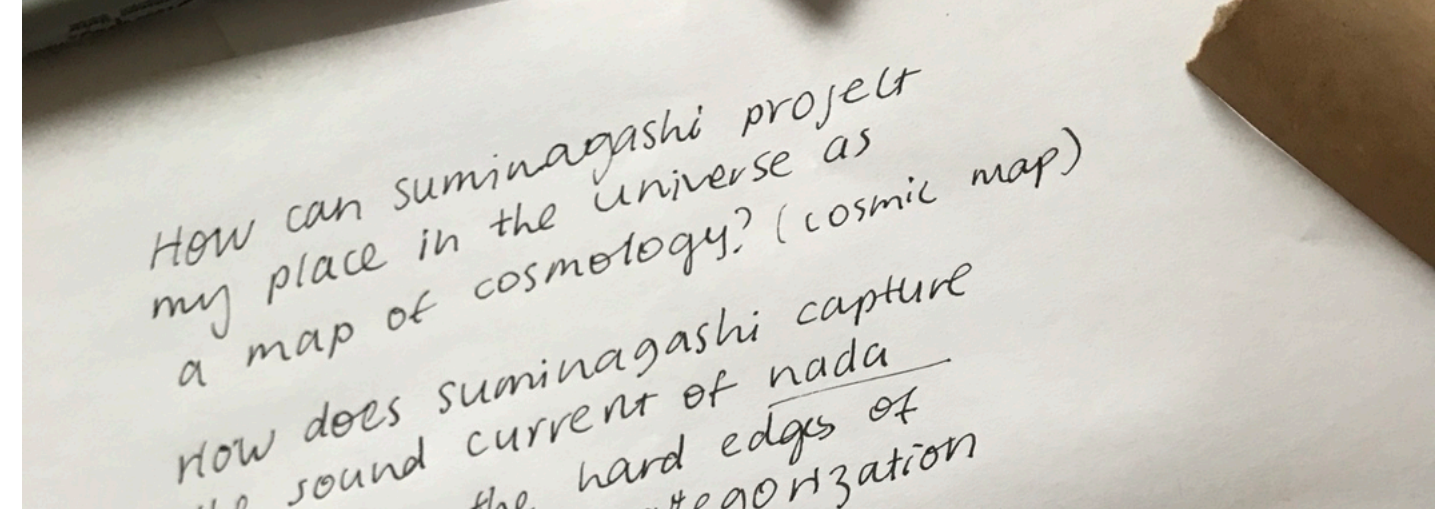 How can suminagashi project
my place in the universe as
a map of cosmology? (cosmic map)
How does suminagashi capture
the sound current of nada
the hard edges of